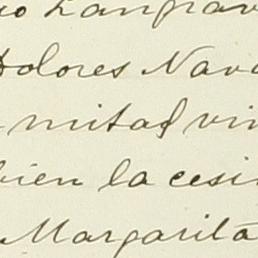 Dolores Nava
mitad vin
bien la cesi
Margarita